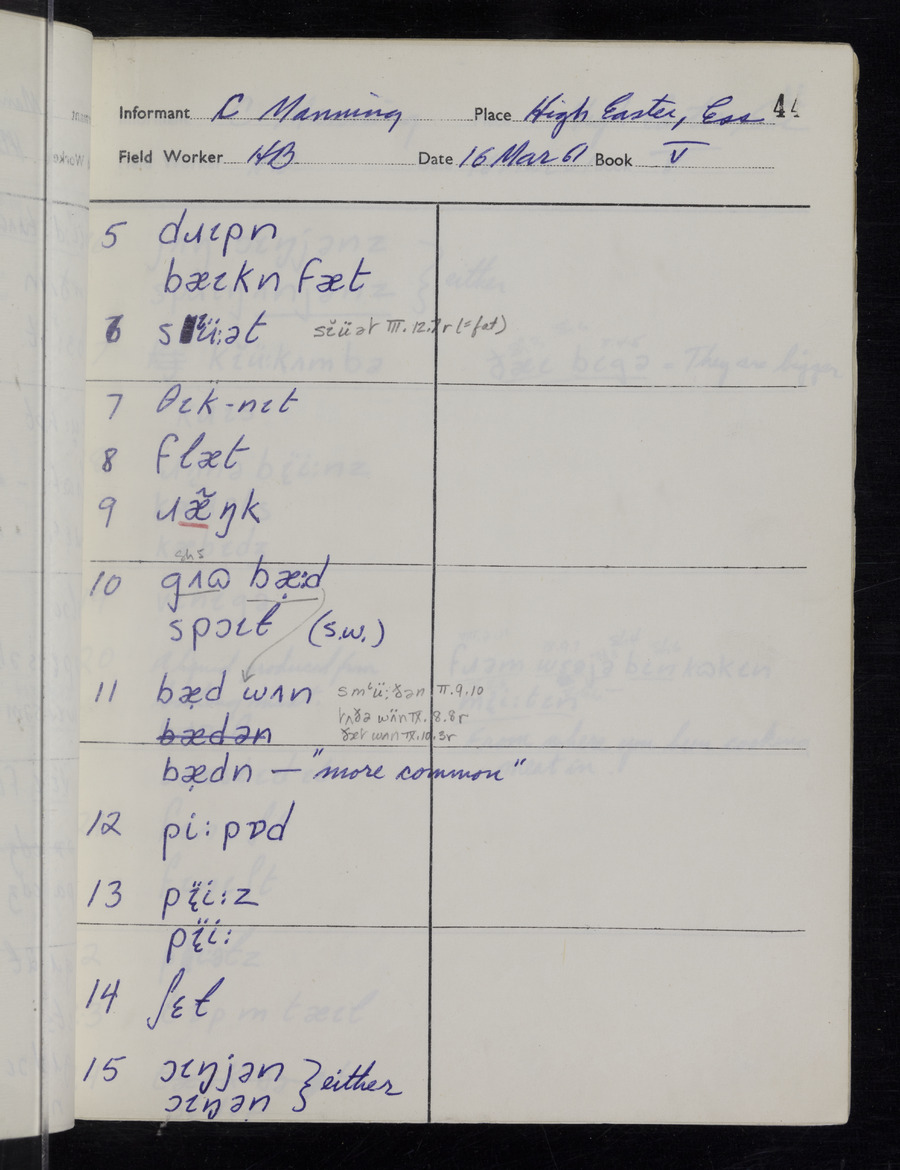 Informant C Manning Place High Easter, Ess 44
Field Worker HB Date 16 Mar 61 Book V
5 dɹɪpn
bæɪkn fæt
6 sᶤü:ət sɪ̈üət III.12.7r (=fat)
7 θɪk-nɪt
8 flæt
9 ɹæ̃ŋk
10 gʌɷ bæ̣:d
spɔɪt (s.w.)
11 bæ̣d wʌn smᶤü:ðən II.9.10
ɹʌðə wʌ̈n IX.8.8r
bædən ðæt wʌn IX.10.3r
bæ̣dn — "more common"
12 pi:pɒd
13 pɪ̈i:z
pɪ̈i:
14 ʃɛt
15 ɔɪŋjən } either
ɔɪŋən